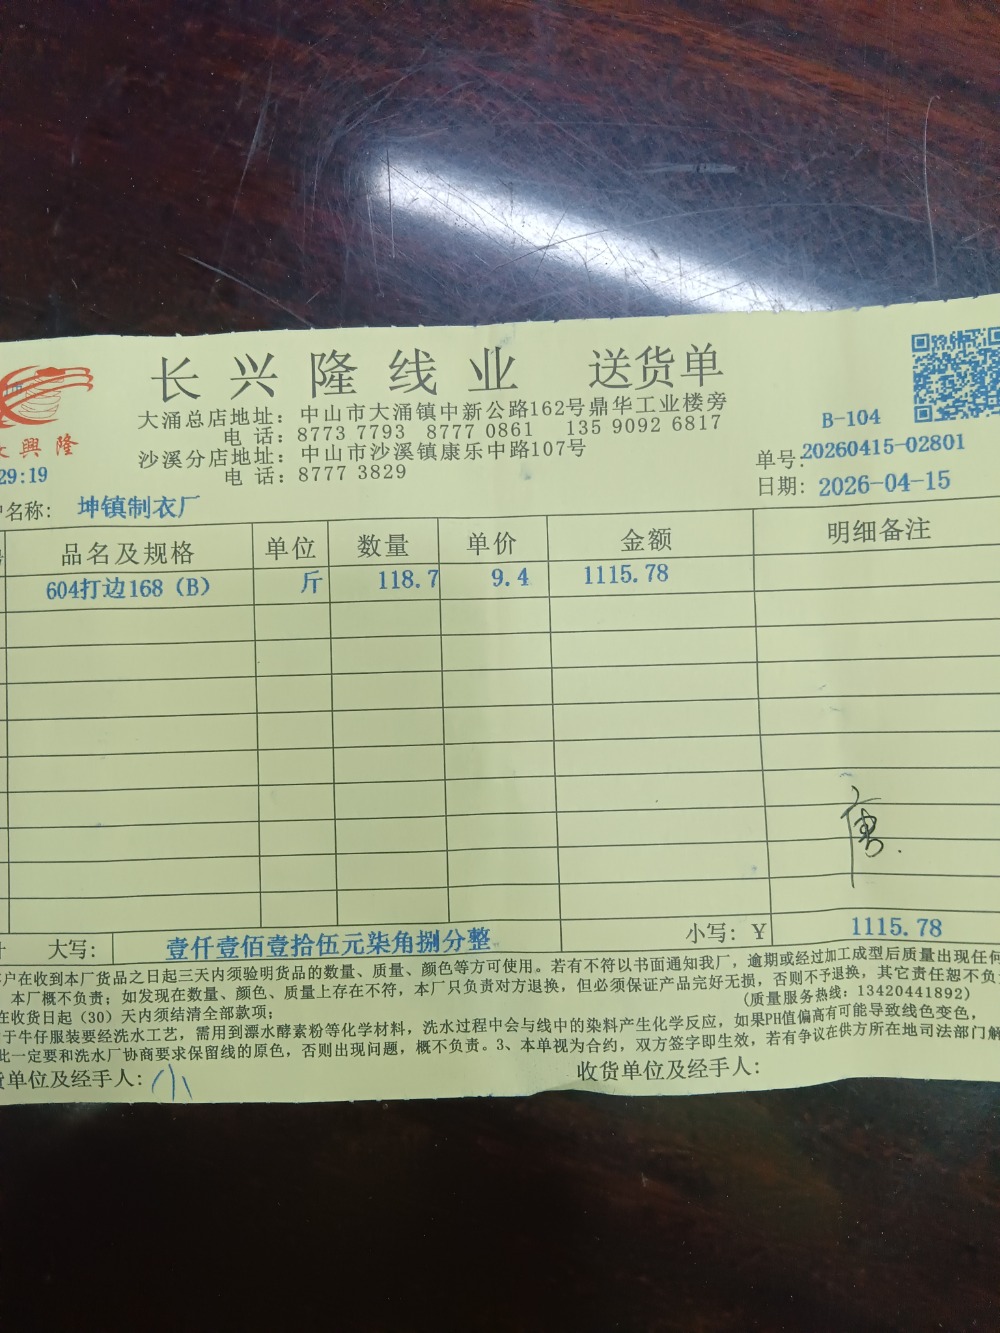 长兴隆线业 送货单
大涌总店地址：中山市大涌镇中新公路162号鼎华工业楼旁
电 话：8773 7793 8777 0861 135 9092 6817
沙溪分店地址：中山市沙溪镇康乐中路107号
电 话：8777 3829
興隆
29:19
B-104
单号:20260415-02801
日期：2026-04-15
名称： 坤镇制衣厂
品名及规格 单位 数量 单价 金额 明细备注
604打边168（B） 斤 118.7 9.4 1115.78
唐
大写： 壹仟壹佰壹拾伍元柒角捌分整 小写：Y 1115.78
户在收到本厂货品之日起三天内须验明货品的数量、质量、颜色等方可使用。若有不符以书面通知我厂，逾期或经过加工成型后质量出现任何
本厂概不负责；如发现在数量、颜色、质量上存在不符，本厂只负责对方退换，但必须保证产品完好无损，否则不予退换，其它责任恕不负
在收货日起（30）天内须结清全部款项； （质量服务热线：13420441892）
于牛仔服装要经洗水工艺，需用到漂水酵素粉等化学材料，洗水过程中会与线中的染料产生化学反应，如果PH值偏高有可能导致线色变色，
此一定要和洗水厂协商要求保留线的原色，否则出现问题，概不负责。3、本单视为合约，双方签字即生效，若有争议在供方所在地司法部门解
货单位及经手人： 收货单位及经手人：